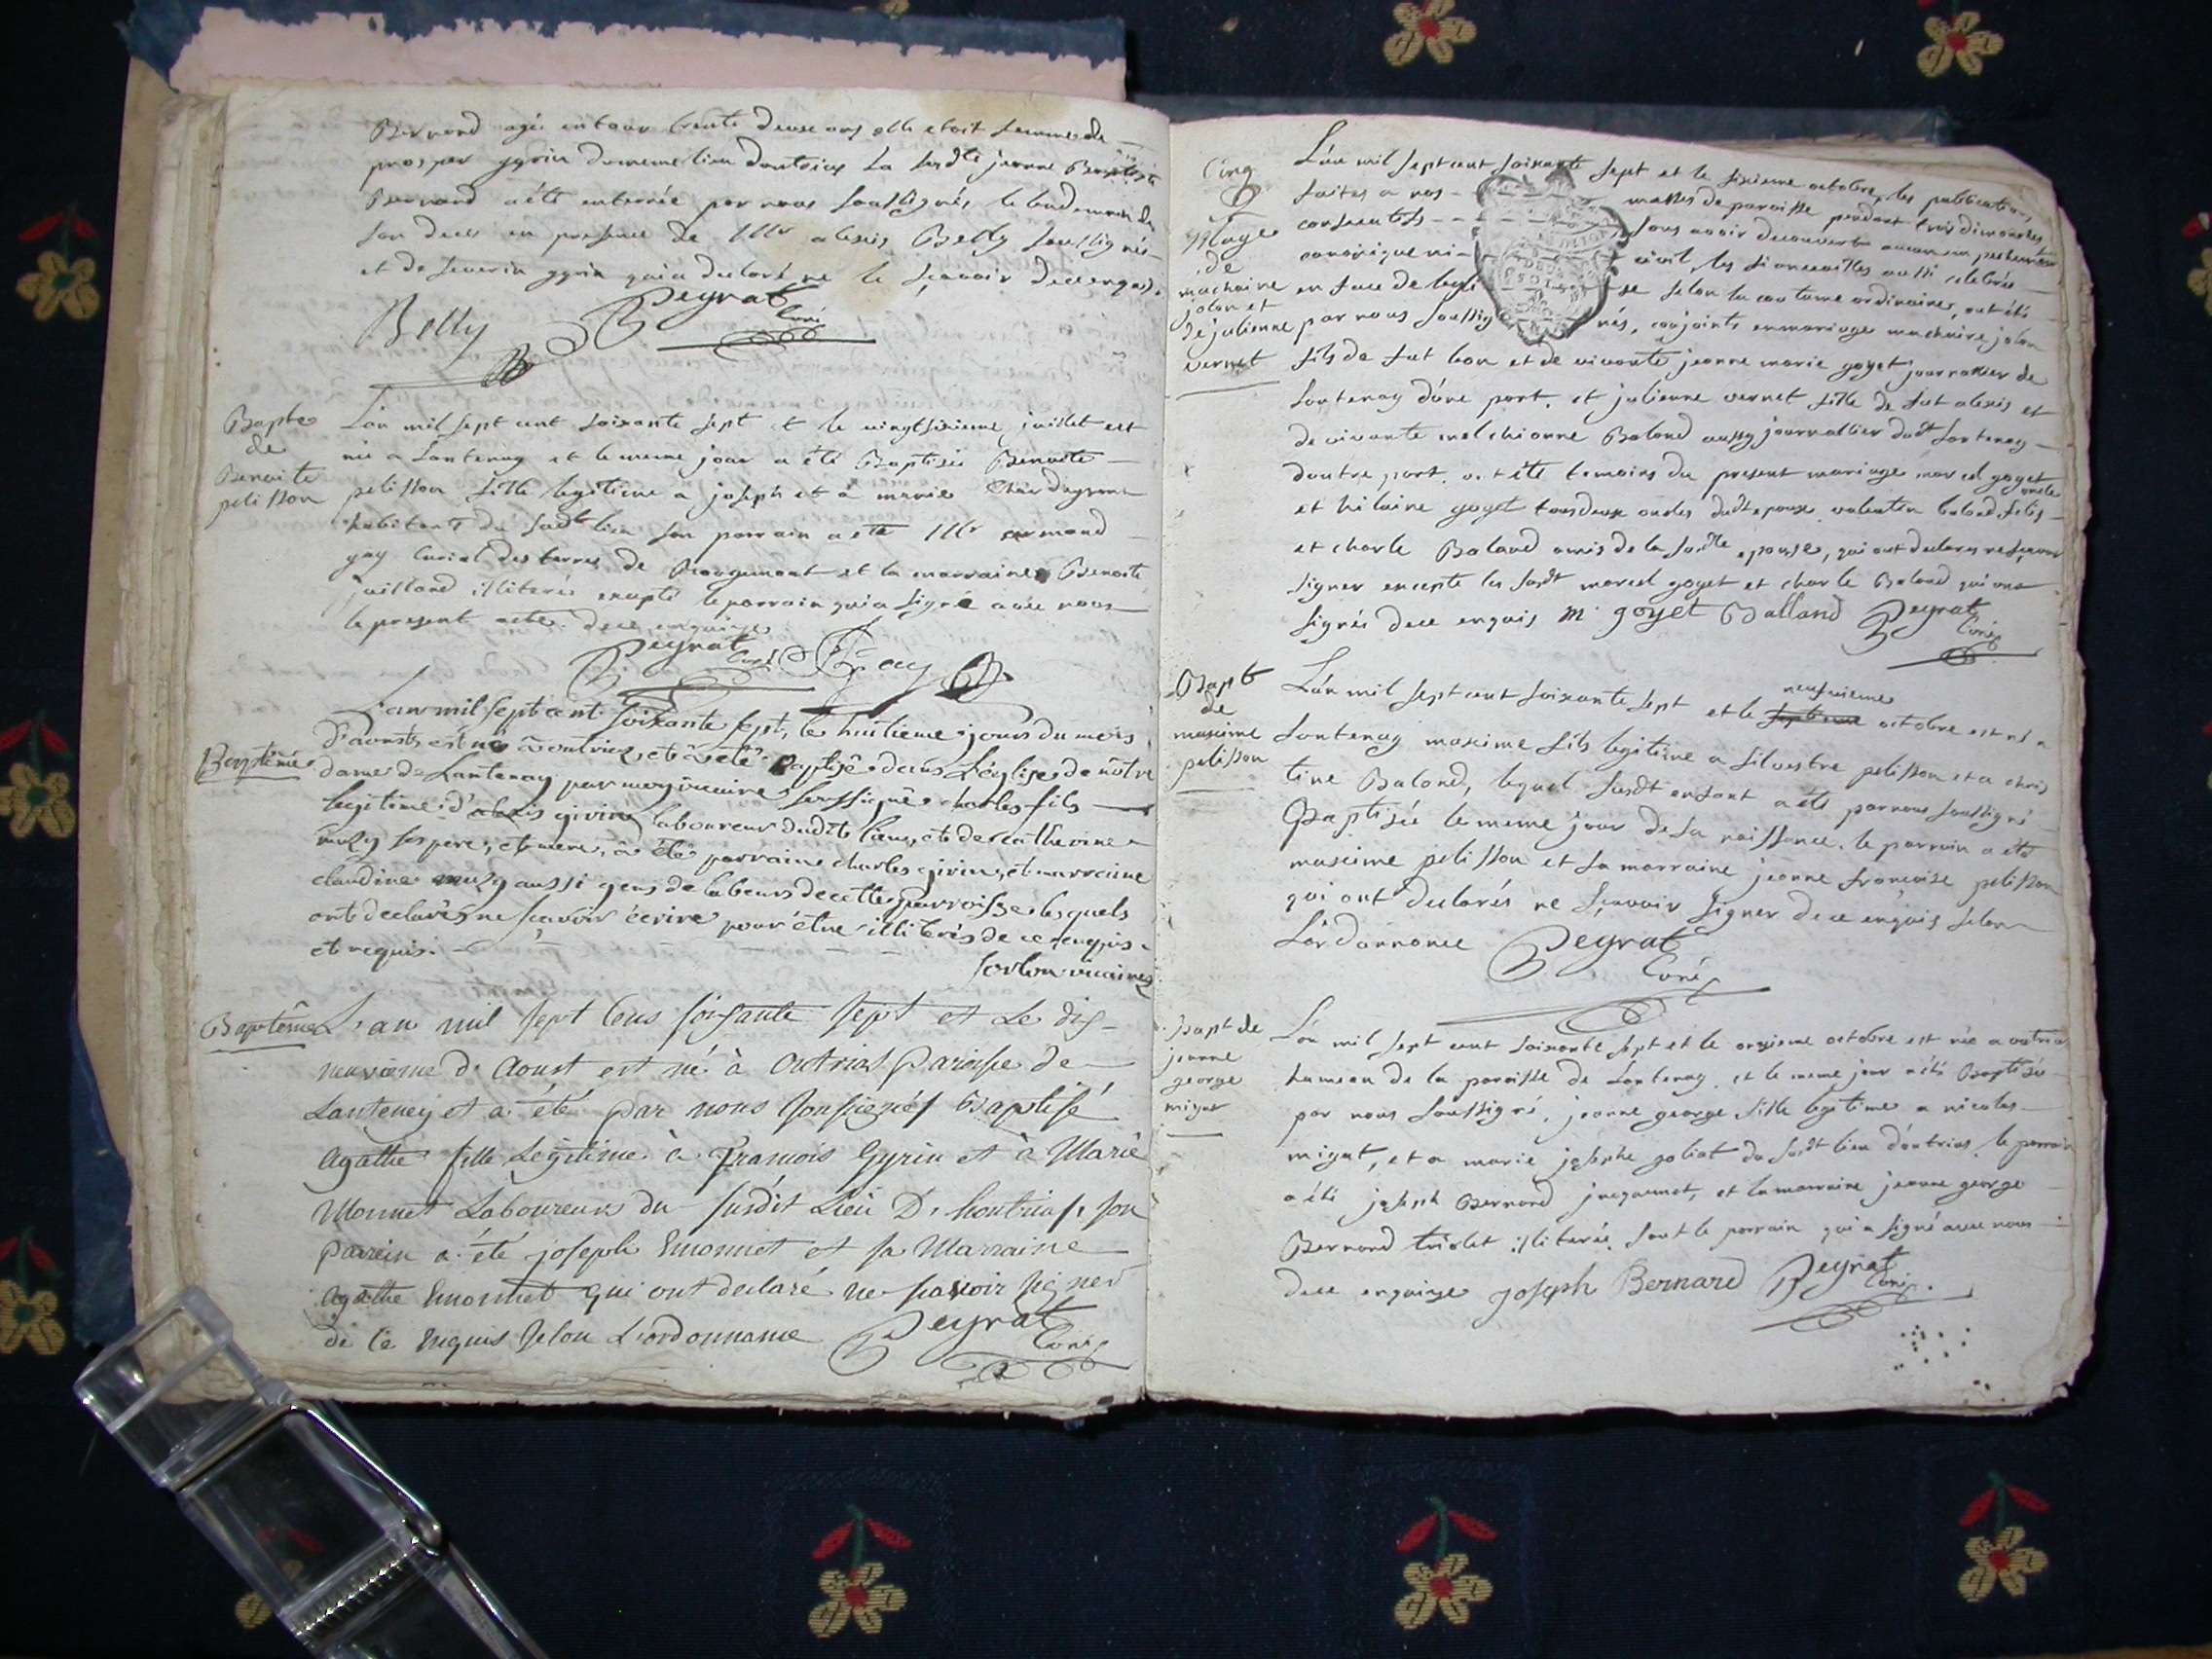 Bernard agée entour trente deux ans elle etoit femme de
prosper gyrin du meme lieu doutriaz La susdte jeanne
Bernard a été enterrée par nous soussignés le lendemain de
son deces en presence de Mr alexis Belly soussignés
et de severin gyrin qui a declaré ne le sçavoir de ce enquis.
Belly Peyrat Curé
Bapte
de
Benoite
pelisson
L'an mil sept cent soixante sept et le vingt sixieme juillet est
née a Lantenay et le meme jour a été Baptisée Benoite
pelisson fille legitime a joseph et a marie
habitants du susdt lieu son parrain a eté Mr armand
gay Curial des terres de Rougemont et la marraine Benoite
juilland illiterée excepté le parrain qui a signé avec nous
le present acte. de ce enquise
Peyrat Curé Gay
Baptême
L'an mil sept cent soixante sept, le huitieme jour du mois
d'aoust, est né à outriaz, et à été baptisé dans L'église de nôtre
dame de Lantenay par moy vicaire soussigné charles fils
legitime d'alexis girin laboureur dudit lieu, et de catherine
muzy ses pere, et mere, à été parrain charles girin, et marraine
claudine muzy aussi gens de labeurs de cette parroisse lesquels
ont declarés ne sçavoir écrire pour être illiterés de ce enquis
et requis.
vicaire
Baptême
L'an mil sept Cens soixante sept et Le dix
neuvieme d'Aoust est né à Outrias Paroisse de
Lanteney et a été par nous soussignés Baptisé
Agathe fille Legitime à François Gyrin et à Marie
Monnet Laboureurs du susdit Lieu D'houtrias, son
Parein a été joseph Emonnet et sa Marraine
Agathe Emonnet Qui ont declaré ne savoir signer
de ce Enquis selon L'ordonnance Peyrat Curé
Cinq
Mage
de
machaire
jolon et
de julienne
vernet
L'an mil sept cent soixante sept et le sixieme octobre, les publications
faites a nos messes de paroisse pendant trois dimanches
consecutifs sans avoir decouvert aucun empechement
canonique ni civil, les fiancailles aussi celebrées
en face de legli se selon la coutume ordinaire, ont étés
par nous soussig nés, conjoints en mariage machaire jolon
fils de fut leon et de vivante jeanne marie goyet journallier de
Lantenay d'une part, et julienne vernet fille de fut alexis et
de vivante melchionne Baland aussy journallier dudt Lantenay
dautre part. ont été temoins du present mariage marcel goyet
oncle
et hilaire goyet tous deux oncles dudt epoux valentin baland
et charle Baland amis de la susdte epouse, qui ont declarés ne sçavoir
signer excepte les susdt marcel goyet et charle Baland qui ont
signés de ce enquis m. goyet Balland Peyrat Curé
Bapt
de
maxime
pelisson
L'an mil sept cent soixante sept et le neufvieme octobre est né a
Lantenay maxime fils legitime a silvestre pelisson et a chris
tine Baland, lequel susdt enfant a été par nous soussigné
Baptisée le meme jour de sa naissance. le parrain a été
maxime pelisson et sa marraine jeanne françoise pelisson
qui ont declarés ne sçavoir signer de ce enquis selon
L'ordonnance Peyrat
Curé
Bapt de
jeanne
george
migut
L'an mil sept cent soixante sept et le onzieme octobre est née a outria
hameau de la paroisse de Lantenay, et le meme jour a été Baptisée
par nous soussigné, jeanne george fille legitime a nicolas
migut, et a marie josephe goliat du susdt lieu d'outrias, le parrain
a été joseph Bernard jacquemet, et la marraine jeanne george
Bernard triolet illiterée, sauf le parrain qui a signé avec nous
de ce enquise joseph Bernard Peyrat Curé